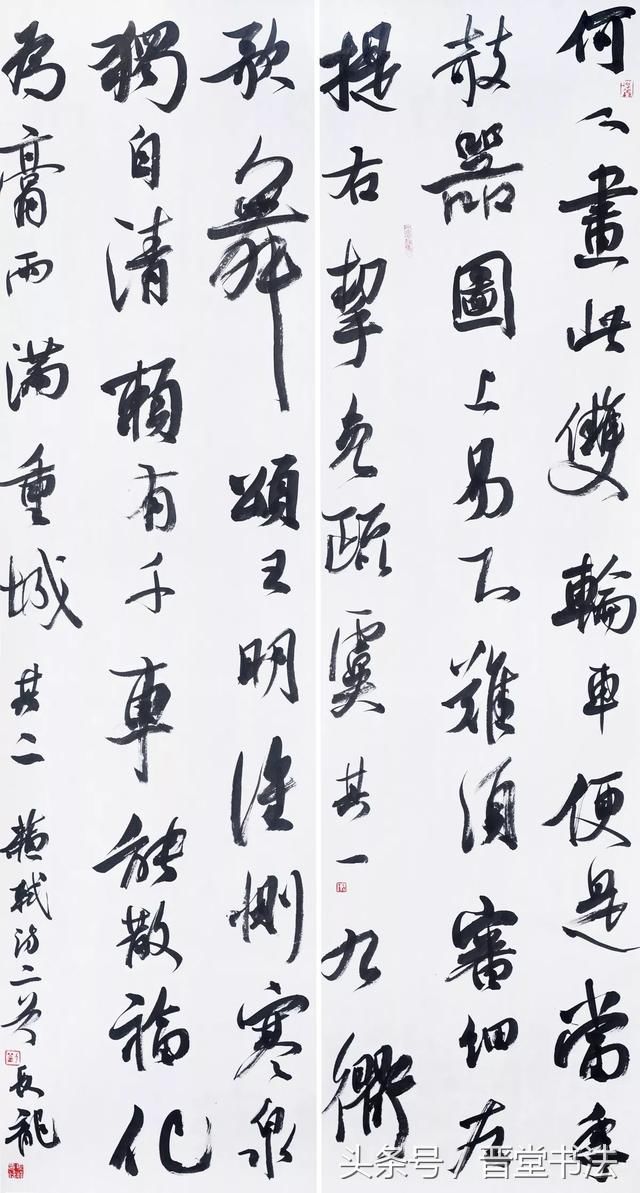 何人畫此雙輪車便是當年
敧器圖上易下難須審細左
提右挈免疏虞 其一 九衢
歌舞頌王明誰惻寒泉
獨自清賴有千車能散福化
為膏雨滿重城 其二 蘇軾詩二首 長龍
头条号/晋堂书法